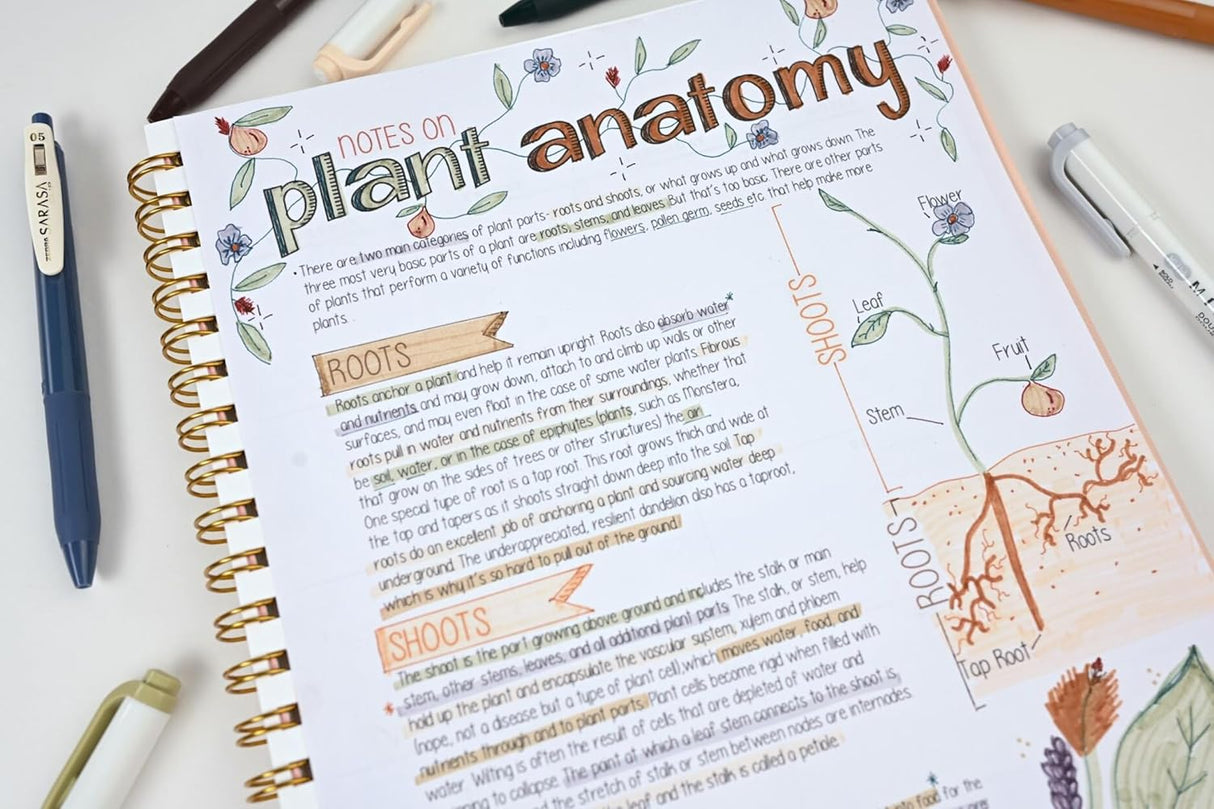 NOTES ON
plant anatomy
• There are two main categories of plant parts- roots and shoots, or what grows up and what grows down. The
three most very basic parts of a plant are roots, stems, and leaves. But that's too basic. There are other parts
of plants that perform a variety of functions including flowers, pollen germ, seeds etc that help make more
plants.
ROOTS
Roots anchor a plant and help it remain upright. Roots also absorb water*
and nutrients and may grow down, attach to and climb up walls or other
surfaces, and may even float in the case of some water plants. Fibrous
roots pull in water and nutrients from their surroundings, whether that
be soil, water, or in the case of epiphytes (plants, such as Monstera,
that grow on the sides of trees or other structures) the air.
One special type of root is a tap root. This root grows thick and wide at
the top and tapers as it shoots straight down deep into the soil. Tap
roots do an excellent job of anchoring a plant and sourcing water deep
underground. The underappreciated, resilient dandelion also has a taproot,
which is why it's so hard to pull out of the ground.
SHOOTS
The shoot is the part growing above ground and includes the stalk or main
stem, other stems, leaves, and all additional plant parts. The stalk, or stem, help
* hold up the plant and encapsulate the vascular system, xylem and phloem
(nope, not a disease but a type of plant cell) which moves water, food, and
nutrients through and to plant parts. Plant cells become rigid when filled with
water. Wilting is often the result of cells that are depleted of water and
to collapse. The point at which a leaf stem connects to the shoot is
and the stretch of stalk or stem between nodes are internodes.
leaf and the stalk is called a petiole.
into food for the
SHOOTS
Flower
Leaf
Fruit
Stem
ROOTS
Roots
Tap Root
05
ZEBRA SARASA